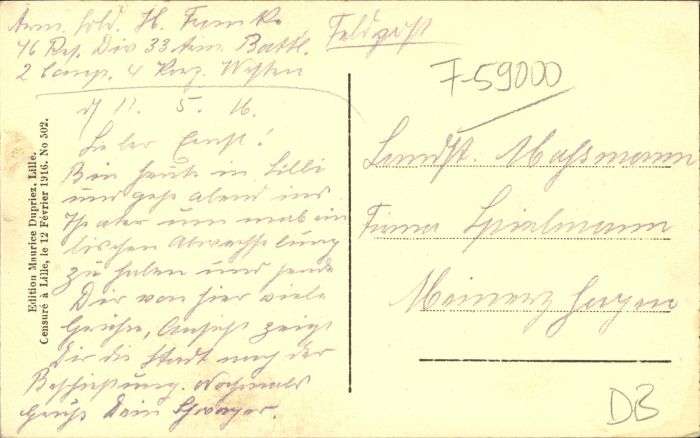 Arm. Sold. H. Funke
46 Res. Div 33 Arm. Battl. Feldpost
2 Comp. 4 Korp. Westen
d 11. 5. 16.
Lieber Ernst!
Bin heute in Lille
und gehe abend ins
Theater um mal ein
bischen Abwechselung
zu haben und sende
Dir von hier viele
Grüße, Ansicht zeigt
Dir die Stadt nach der
Beschießung. Nochmals
Gruß Dein Schwager.
Edition Maurice Dupriez, Lille.
Censuré à Lille, le 12 Février 1916. No 502.
7-59000
Landst. Massmann
Firma Spielmann
Meinerzhagen
DB